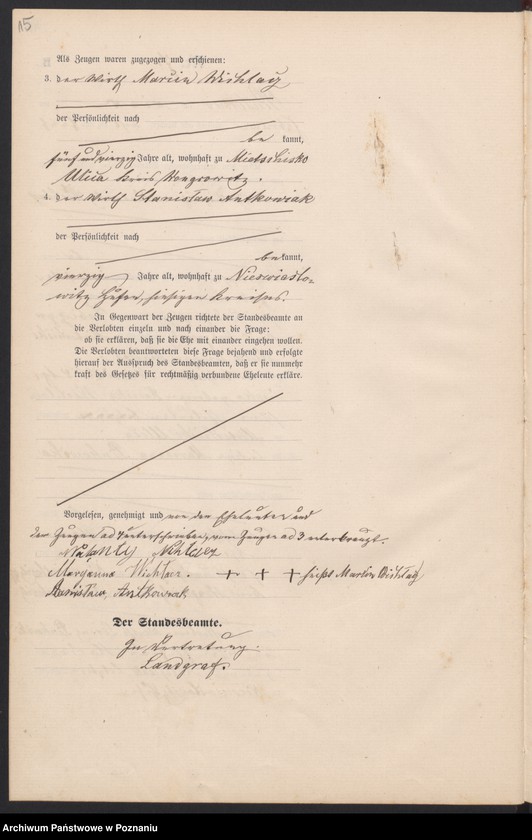 15
Als Zeugen waren zugezogen und erschienen:
3. der Wirth Marcin Wichlacz
der Persönlichkeit nach
be kannt,
fünfundvierzig Jahre alt, wohnhaft zu Mietschisko
Kreis Wongrowitz.
4. der Wirth Stanisław Antkowiak
der Persönlichkeit nach
bekannt,
vierzig Jahre alt, wohnhaft zu Nieswiasto-
witz hiesigen Kreises.
In Gegenwart der Zeugen richtete der Standesbeamte an
die Verlobten einzeln und nach einander die Frage:
ob sie erklären, daß sie die Ehe mit einander eingehen wollen.
Die Verlobten beantworteten diese Frage bejahend und erfolgte
hierauf der Ausspruch des Standesbeamten, daß er sie nunmehr
kraft des Gesetzes für rechtmäßig verbundene Eheleute erkläre.
Vorgelesen, genehmigt und von den Eheleuten und
dem Zeugen ad 4 unterschrieben, vom Zeugen ad 3 unterkreuzt.
Maryanna
+ + + Martin
Stanisław Antkowiak
Der Standesbeamte.
In Vertretung.
Landgraf.
Archiwum Państwowe w Poznaniu